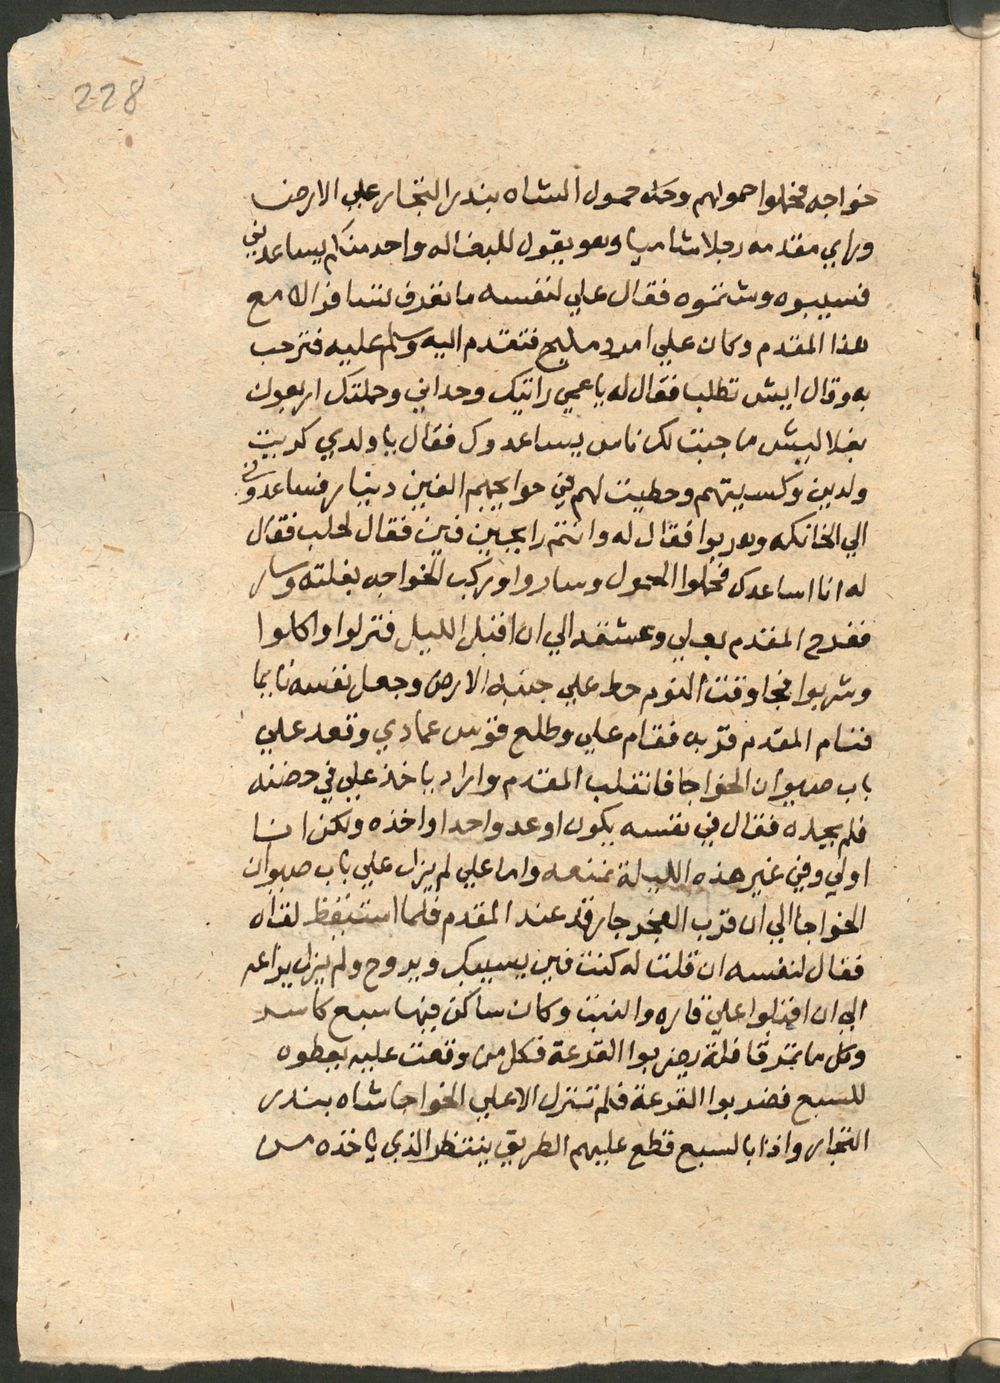 228
خواجه فحملوا حمولهم وحط حمول الشاه بندر التجار علي الارض
وراي مقدمه رجلا شاميا وهو يقول للبغاله واحد منكم يساعدني
فسيبوه وشتموه فقال علي لنفسه ما نقدرف نتسافر الا مع
هذا المقدم وكان علي امرد مليح فتقدم اليه وسلم عليه فترحب
به وقال ايش تطلب فقال له يا عمي رايتك وحداني وحملتك اربعون
بغلا ليش ما جبت لك ناس يساعدوك فقال يا ولدي كريت
ولدين وكسيتهم وحطيت لهم في حوايجهم الفين دينار فساعدوني
الي الخانكه وهربوا فقال له وانتم رايحين فين فقال لحلب فقال
له انا اساعدك فحملوا الحمول وساروا وركب الخواجه بغلته وسار
ففرح المقدم بعلي وعشقه الي ان اقبل الليل فنزلوا واكلوا
وشربوا فجا وقت النوم حط علي جنبه الارض وجعل نفسه نايما
فنام المقدم قربه فقام علي وطلع فوس عمادي وقعد علي
باب صيوان الخواجا فانقلب المقدم واراد ياخذ علي في حضنه
فلم يجده فقال في نفسه يكون اوعد واحدا واخذه ولكن انا
اولي وفي غير هذه الليلة نمنعه واما علي لم يزل علي باب صيوان
الخواجا الي ان قرب الفجر جا رقد عند المقدم فلما استيقظ لقاه
فقال لنفسه ان قلت له كنت فين يسيبك ويروح ولم يزل يراعه
الي ان اقبلوا علي قاره والنبت وكان ساكن فيها سبع كاسر
وكل ما تمر قافلة يضربوا القرعة فكل من وقعت عليه يعطوه
للسبع فضربوا القرعة فلم تنزل الا علي الخواجا شاه بندر
التجار واذا بالسبع قطع عليهم الطريق ينتظر الذي ياخذه من